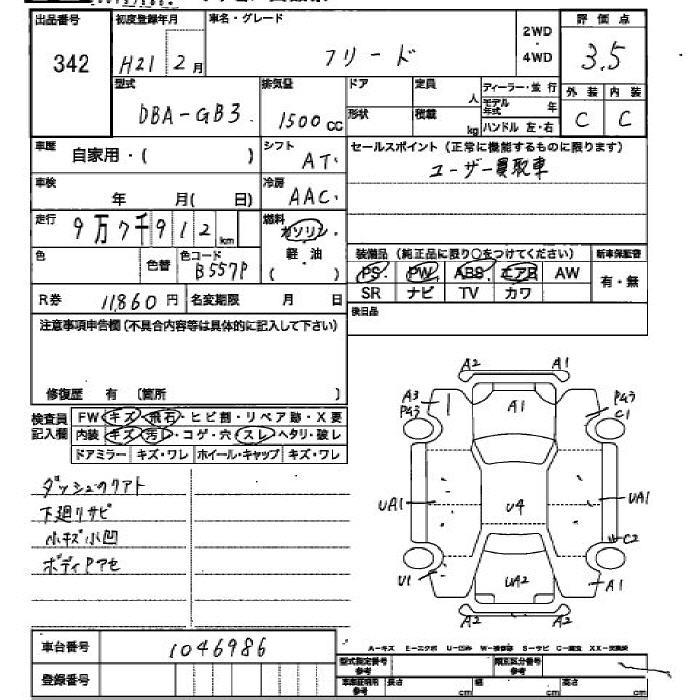 出品番号 初度登録年月 車名・グレード 2WD・4WD 評価点
342 H21 2月 フリード 3.5
型式 排気量 ドア 定員 人 ディーラー・並行 外装 内装
DBA-GB3 1500cc 形状 積載 kg モデル年式 年 C C
ハンドル 左・右
車歴 自家用・( ) シフト AT セールスポイント(正常に機能するものに限ります)
ユーザー買取車
車検 年 月( 日) 冷房 AAC
走行 9万7千912km 燃料 ガソリン
軽・油
( )
色 色替 色コード B557P 装備品(純正品に限り○をつけてください) 新車保証書
PS PW ABS エアB AW 有・無
R券 11,860円 名変期限 月 日 SR ナビ TV カワ
注意事項申告欄(不具合内容等は具体的に記入して下さい) 後日品
修復歴 有 〔箇所 〕
検査員記入欄 FW キズ・飛石・ヒビ割・リペア跡・X要
内装 キズ・汚レ・コゲ・穴・スレ・ヘタリ・破レ
ドアミラー キズ・ワレ ホイール・キャップ キズ・ワレ
A2 A1
A3 P43 A1 P43 C1
ダッシュのリアト
下廻りサビ UA1 U4 UA1
小キズ小凹 C2
ボディPアセ U1 UA2 A1
A2 A2
車台番号 1046986 A-キズ E-エクボ U-凹み W-補修跡 S-サビ C-腐食 XX-交換跡
登録番号 型式指定番号 参考 類別区分番号 参考
車庫証明用 参考 長さ cm 幅 cm 高さ cm